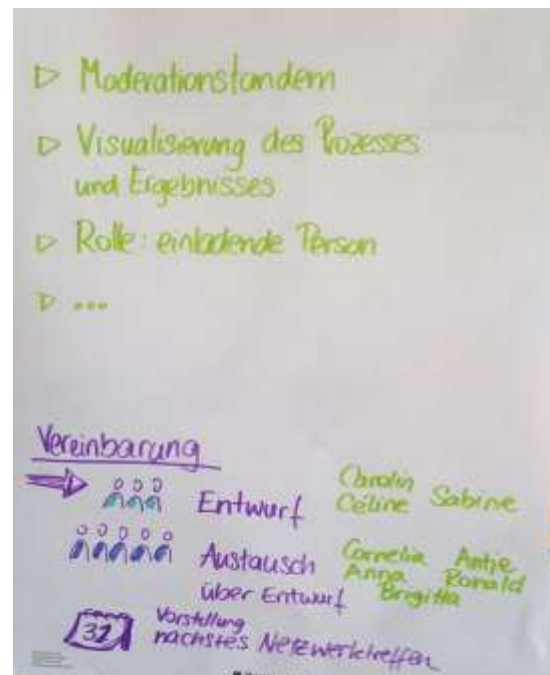 ▷ Moderationstandem
▷ Visualisierung des Prozesses
und Ergebnisses
▷ Rolle: einladende Person
▷ ...
Vereinbarung
Entwurf
Carolin
Céline Sabine
Austausch
über Entwurf
Cornelia Antje
Anna Ronald
Brigitta
31
Vorstellung
nächstes Netzwerktreffen